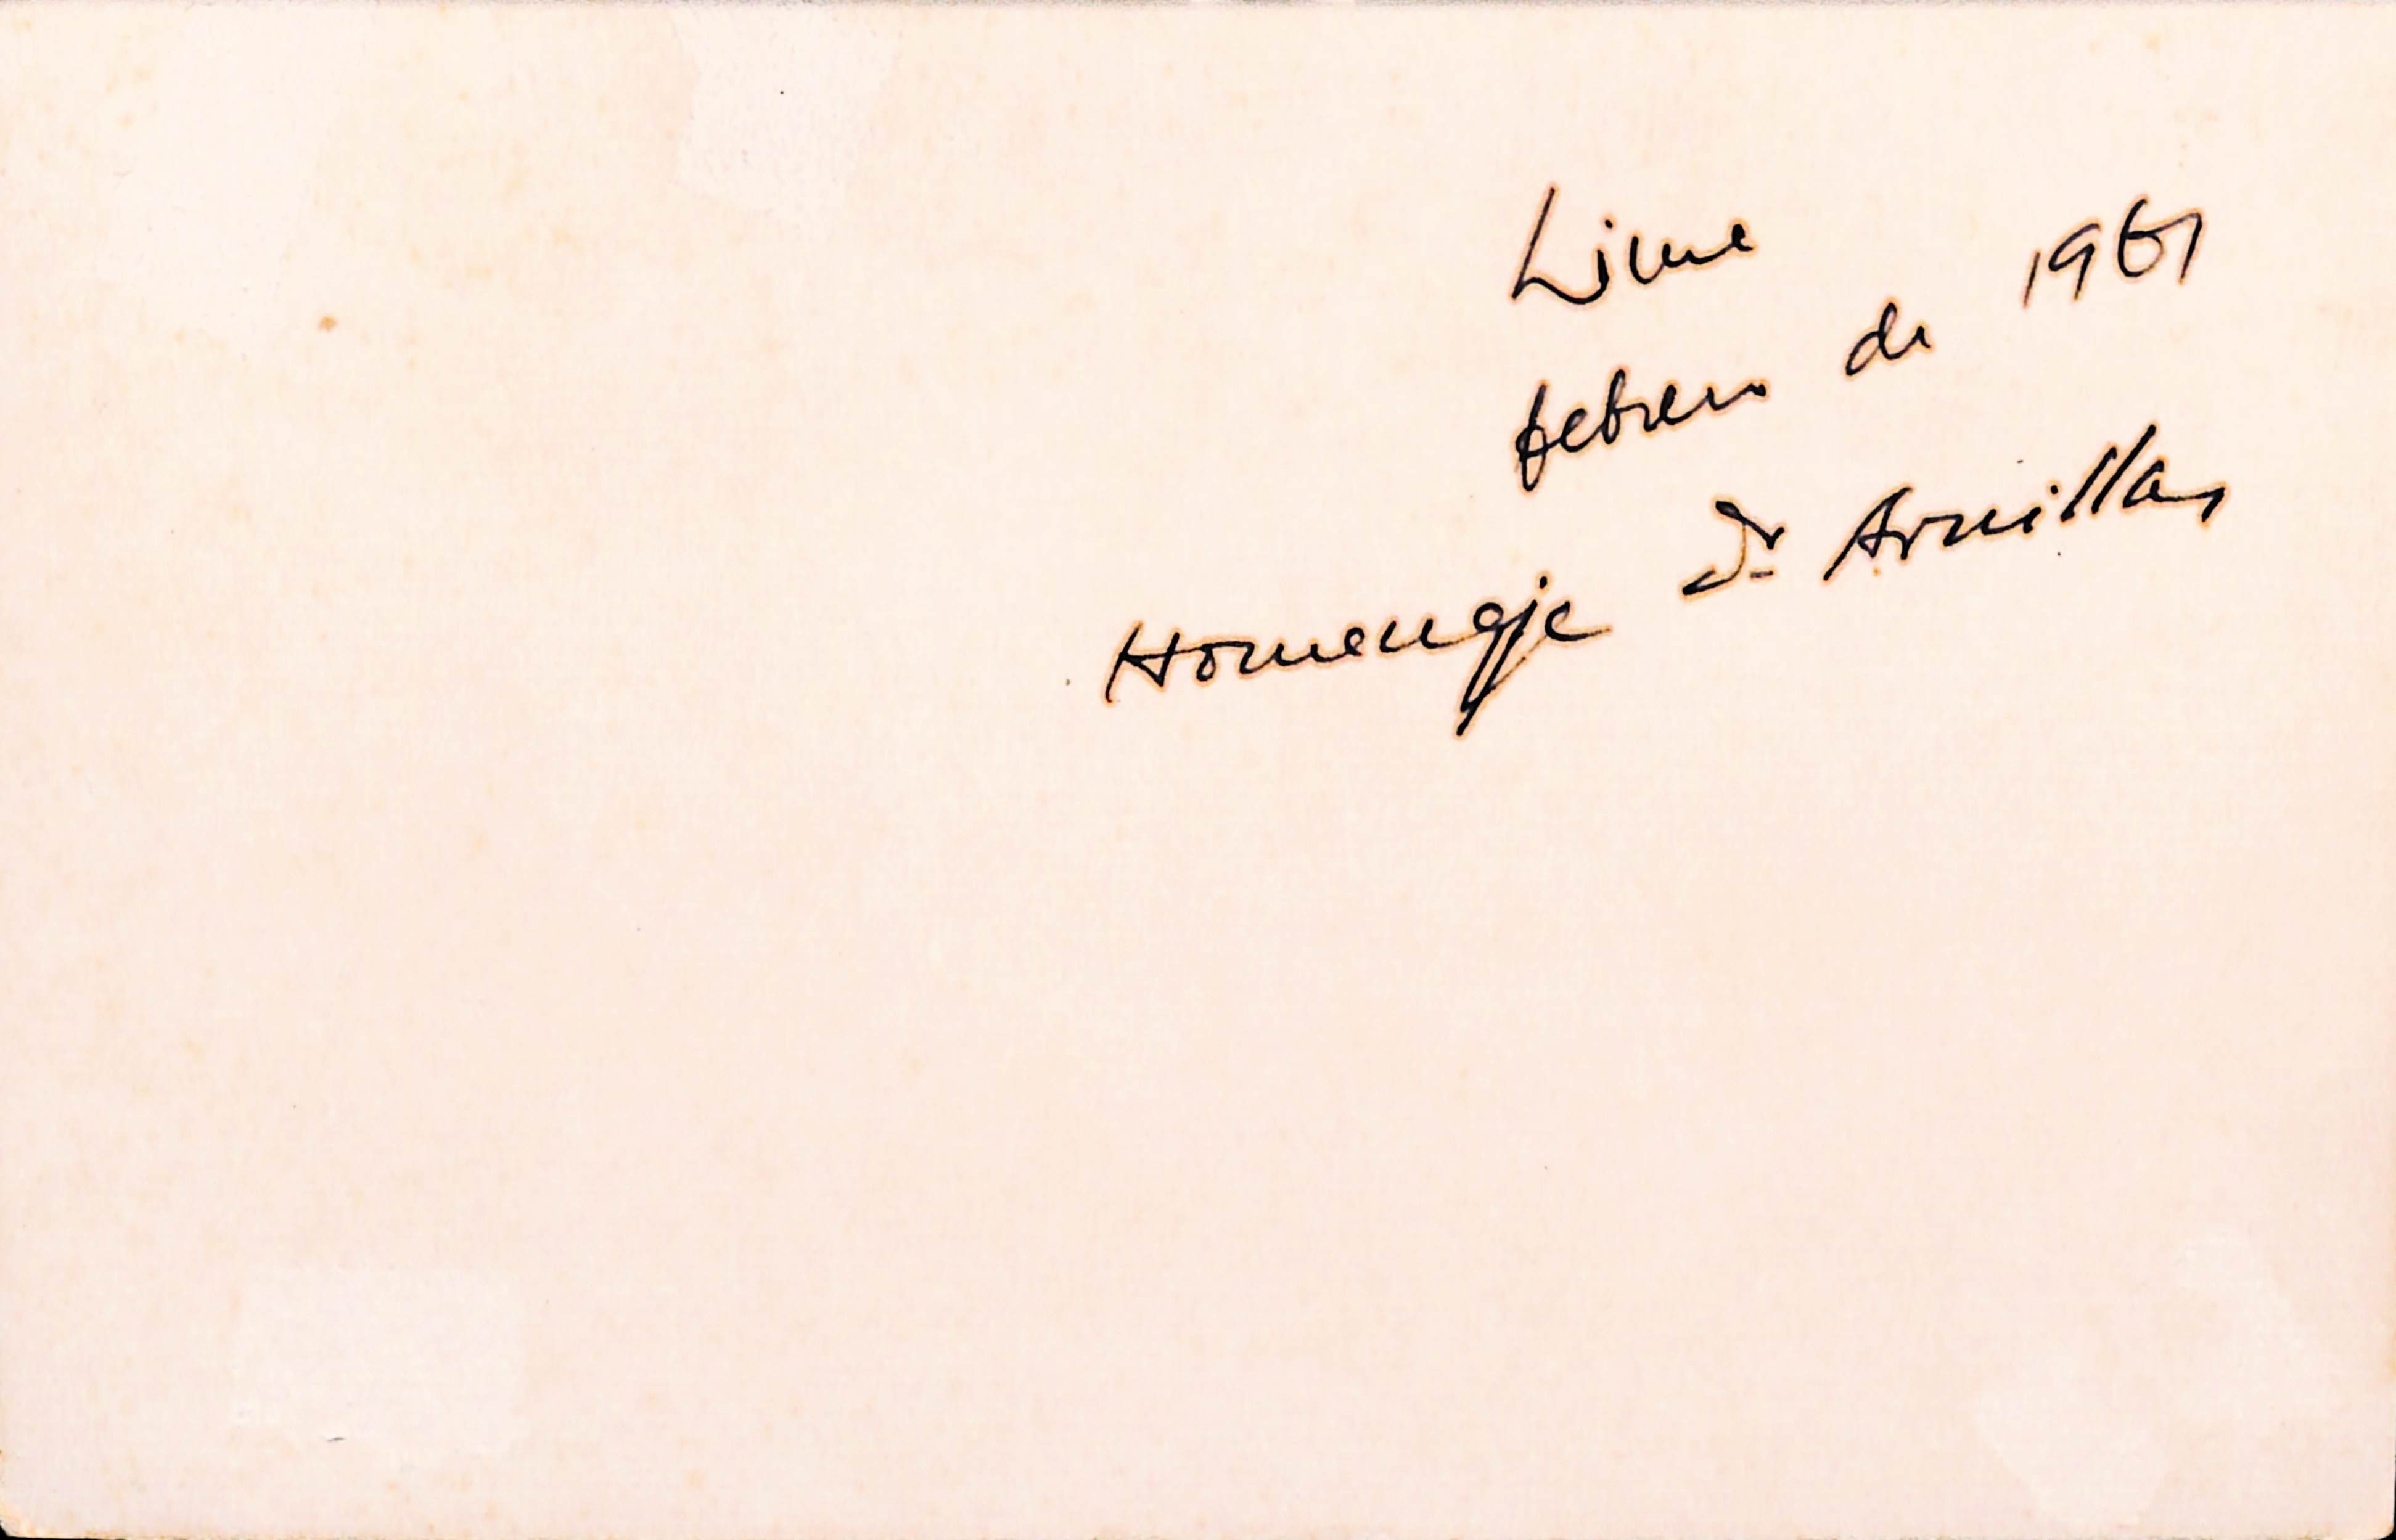 Lima
febrero de 1961
Homenaje Dr Arnillas